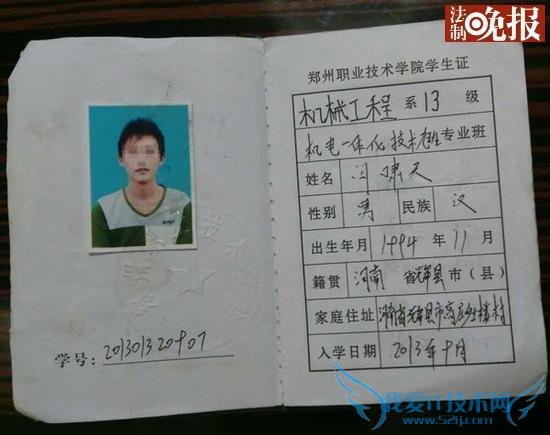 法制晚报
郑州职业技术学院学生证
机械工程 系 13 级
机电一体化技术 专业 班
姓名 闫啸天
性别 男 民族 汉
出生年月 1994年11月
籍贯 河南 省辉县市(县)
家庭住址 河南省辉县市高庄乡楼村
入学日期 2013年9月
学号: 201301320907
我爱IT技术网
www.52ij.com